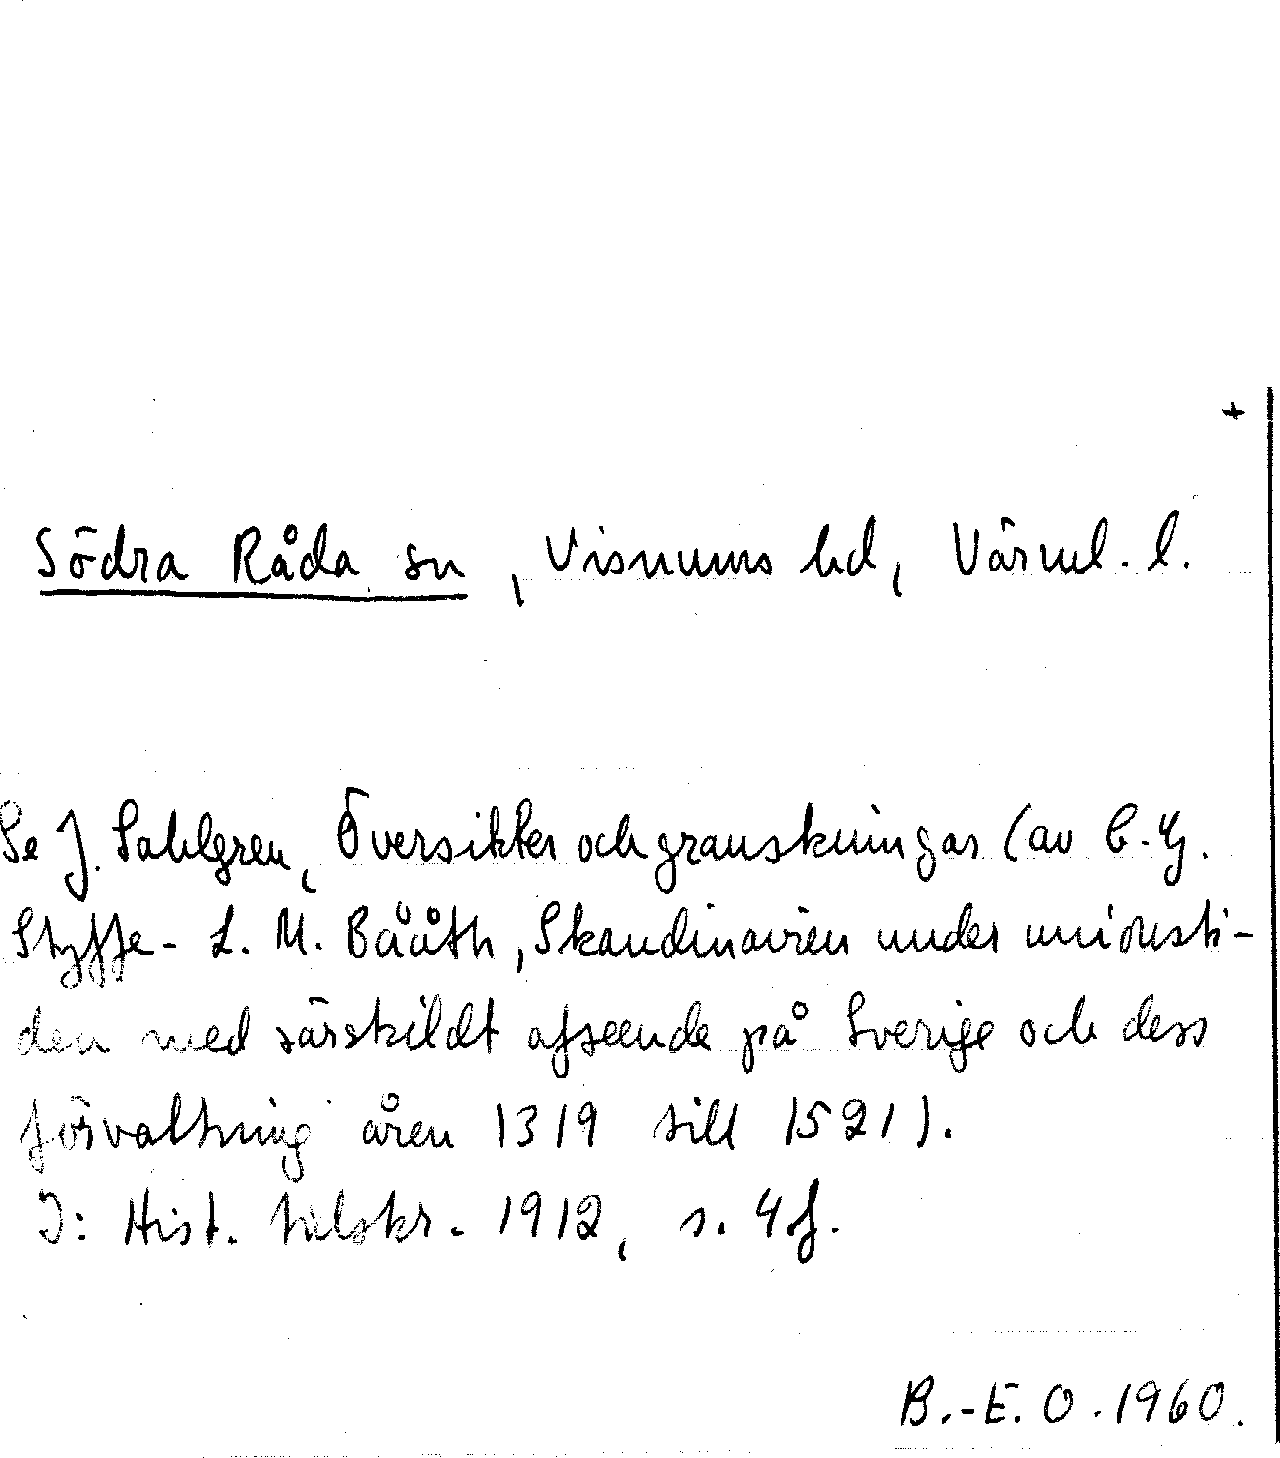 +
Södra Råda sn, Visnums hd, Värml. l.
Se J. Sahlgren, Översikter och granskningar (av C. G.
Styffe - L. M. Bååth, Skandinavien under unionsti-
den med särskildt afseende på Sverige och dess
förvaltning åren 1319 till 1521).
I: Hist. tidskr. 1912, s. 4 f.
B.-E. O. 1960.